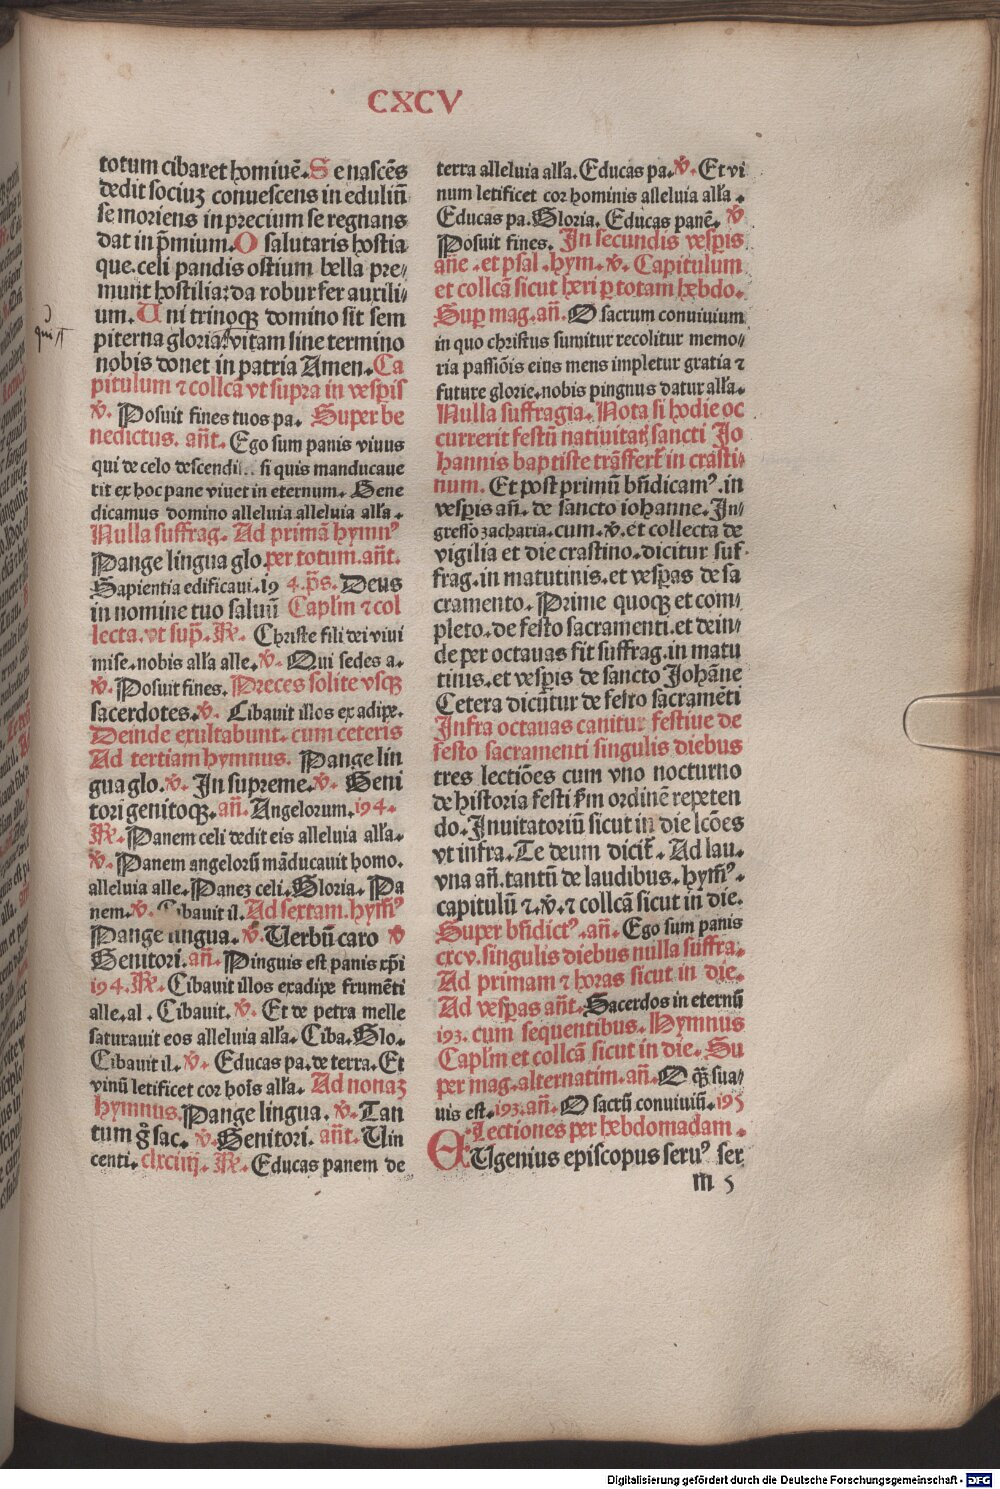 CXCV
totum cibaret homiuē. Se nascēs
dedit sociuȝ conuescens in eduliū
se moriens in precium se regnans
dat in p̄mium. O salutaris hostia
que.celi pandis ostium bella pre⸗
munt hostilia: da robur fer auxili⸗
um. Uni trinoqꝫ domino sit sem
piterna gloria vitam sine termino
nobis donet in patria Amen. Ca
pitulum ⁊ collcā vt supra in vespis
v̄. Posuit fines tuos pa. Super be
nedictus. añt. Ego sum panis viuus
qui de celo descendi.. si quis manducaue
rit ex hoc pane viuet in eternum. Bene
dicamus domino alleluia alleluia alľa.
Nulla suffrag. Ad primā hymnꝰ
Pange lingua glo per totum.añt.
Sapientia edificaui.194.p̄s. Deus
in nomine tuo saluū Capľm ⁊ col
lecta.vt sup̄. R̄. Christe fili dei viui
mise.nobis alľa alle. v̄. Qui sedes a.
v̄. Posuit fines. Preces solite vsqꝫ
sacerdotes. v̄. Cibauit illos ex adipe.
Deinde exultabunt. cum ceteris
Ad tertiam hymnus. Pange lin
gua glo. v̄. In supreme. v̄. Geni
tori genitoqꝫ. añ. Angelorum.194.
R̄. Panem celi dedit eis alleluia alľa.
v̄. Panem angelorū māducauit homo.
alleluia alle. Paneȝ celi. Gloria. Pa
nem. v̄. Cibauit il. Ad sextam.hym̄ꝰ
Pange lingua. v̄. Uerbū caro v̄
Genitori. añ. Pinguis est panis xp̄i
194. R̄. Cibauit illos ex adipe frumēti
alle.al. Cibauit. v̄. Et de petra melle
saturauit eos alleluia alľa. Ciba. Glo.
Cibauit il. v̄. Educas pa. de terra. Et
vinū letificet cor hoīs alľa. Ad nonaȝ
hymnus. Pange lingua. v̄. Tan
tum g̊ sac. v̄. Genitori. añt. Uin
centi. clxciiij. R̄. Educas panem de
terra alleluia alľa. Educas pa. v̄. Et vi
num letificet cor hominis alleluia alľa.
Educas pa. Gloria. Educas panē. v̄
Posuit fines. In secundis vesp̄is
an̄e. et psal. hym. v̄. Capitulum
et collcā sicut heri p totam hebdo.
Sup mag. añ. O sacrum conuiuium
in quo christus sumitur recolitur memo⸗
ria passiōis eius mens impletur gratia ⁊
future glorie.nobis pingnus datur alľa.
Nulla suffragia. Nota si hodie oc
currerit festū natiuitat sancti Jo
hannis baptiste trāsfert in crasti⸗
num. Et post primū bn̄dicamꝰ. in
vesp̄is añ. de sancto iohanne. In⸗
gresso zacharia. cum. v̄. et collecta de
vigilia et die crastino. dicitur suf⸗
frag. in matutinis. et vesp̄as de sa
cramento. Prime quoqꝫ et com⸗
pleto. de festo sacramenti. et dein⸗
de per octauas fit suffrag. in matu
tinis. et vesp̄is de sancto Johāne
Cetera dicūtur de festo sacramēti
Infra octauas canitur festiue de
festo sacramenti singulis diebus
tres lectiōes cum vno nocturno
de historia festi fm ordinē repeten
do. Inuitatoriū sicut in die lcōes
vt infra. Te deum dicit. Ad lau.
vna añ. tantū de laudibus. hym̄ꝰ.
capitulū ⁊. v̄. ⁊ collcā sicut in die.
Super bn̄dictꝰ. añ. Ego sum panis
cxcv. singulis diebus nulla suffra.
Ad primam ⁊ horas sicut in die.
Ad vesp̄as añt. Sacerdos in eternū
193. cum sequentibus. Hymnus
Capľm et collcā sicut in die. Su
per mag. alternatim. añ. O qꝫ sua⸗
uis est. 193. añ. O sacrū conuiuiū. 195
Lectiones per hebdomadam.
EUgenius episcopus seruꝰ ser
m 5
Digitalisierung gefördert durch die Deutsche Forschungsgemeinschaft - DFG